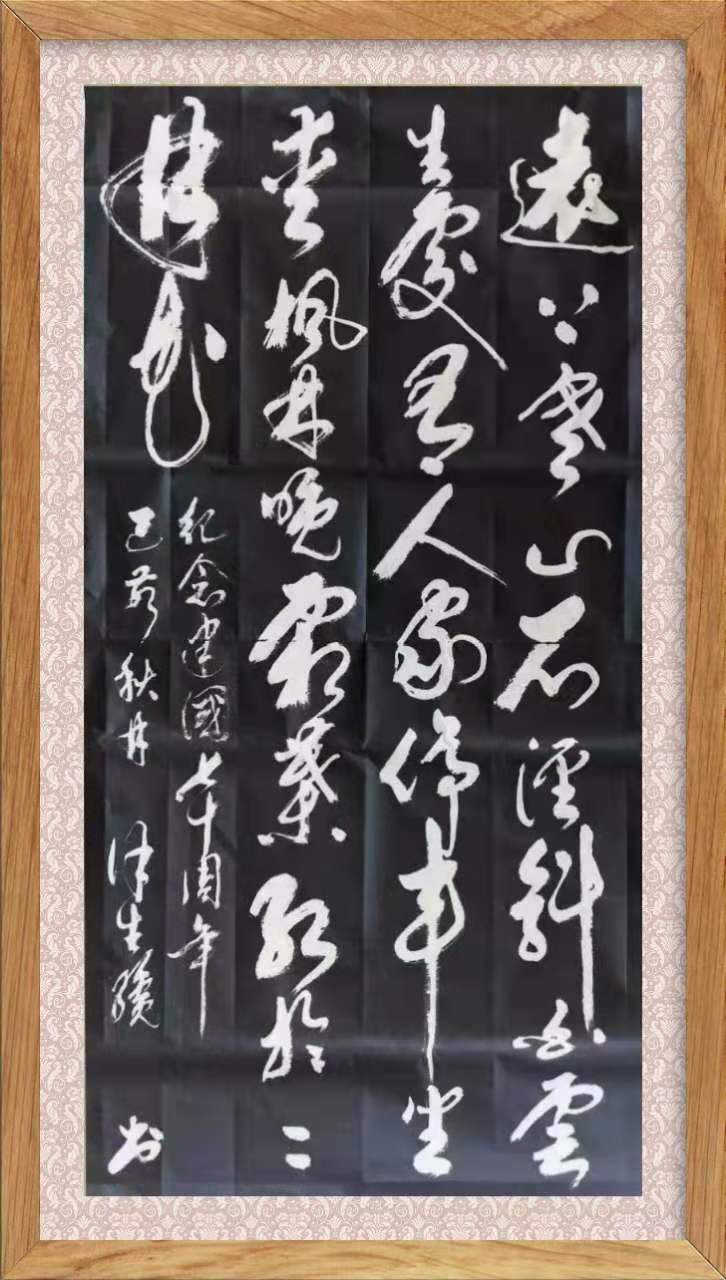 遠上寒山石徑斜白雲
生處有人家停車坐
愛楓林晚霜葉紅於二
月花
紀念建國七十周年
己亥秋月 書